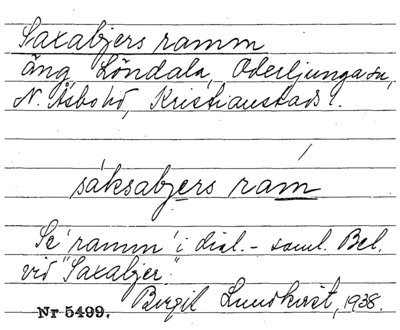 Saxabjers ramm
äng, Löndala, Oderljunga sn,
N. Åsbo hd, Kristianstads l.
sáksabjers ram
Se 'ramm' i dial.- saml. Bel.
vid "Saxabjer".
Birgil Lundkvist, 1938.
Nr 5499.